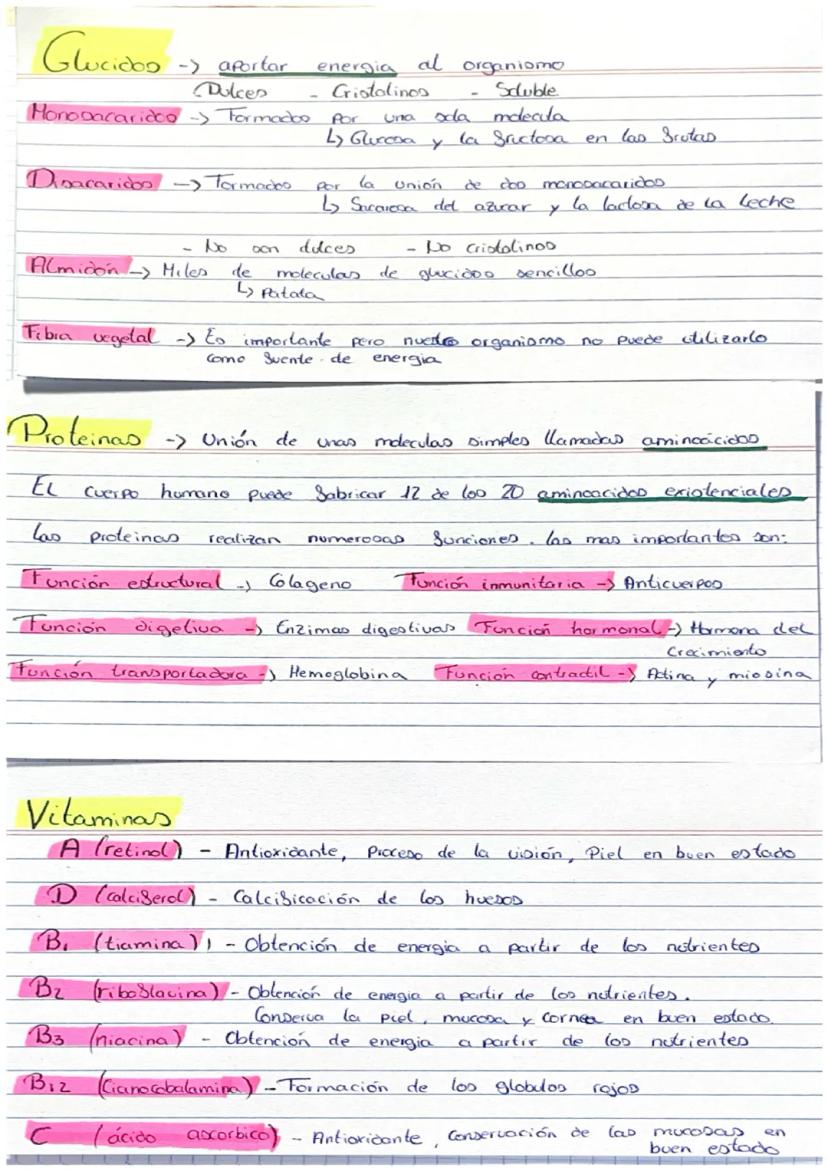 Glucidos -> aportar energia al organismo
Dulces - Cristalinos - Soluble
Monosacaridos -> Formados por una sola molecula
↳ Glucosa y la fructosa en las frutas
Disacaridos -> Formados por la unión de dos monosacaridos
↳ Sacarosa del azucar y la lactosa de la leche
- No son dulces - No cristalinos
Almidón -> Miles de moleculas de glucidos sencillos
↳ Patata
Fibra vegetal -> Es importante pero nuestro organismo no puede utilizarlo
como fuente de energia
Proteinas -> Unión de unas moleculas simples llamadas aminoácidos
El cuerpo humano puede fabricar 12 de los 20 aminoacidos existenciales
Las proteinas realizan numerosas funciones. las mas importantes son:
Función estructural -> Colageno Función inmunitaria -> Anticuerpos
Función digetiva -> Enzimas digestivas Función hormonal -> Hormona del
Crecimiento
Función transportadora -> Hemoglobina Función contractil -> Actina y miosina
Vitaminas
A (retinol) - Antioxidante, Proceso de la visión, Piel en buen estado
D (calciferol) - Calcificación de los huesos
B1 (tiamina) - Obtención de energia a partir de los nutrientes
B2 (riboflavina) - Obtención de energia a partir de los nutrientes.
Conserva la piel, mucosa y cornea en buen estado.
B3 (niacina) - Obtención de energia a partir de los nutrientes
B12 (Cianocobalamina) - Formación de los globulos rojos
C (ácido ascorbico) - Antioxidante, Conservación de las mucosas en
buen estado